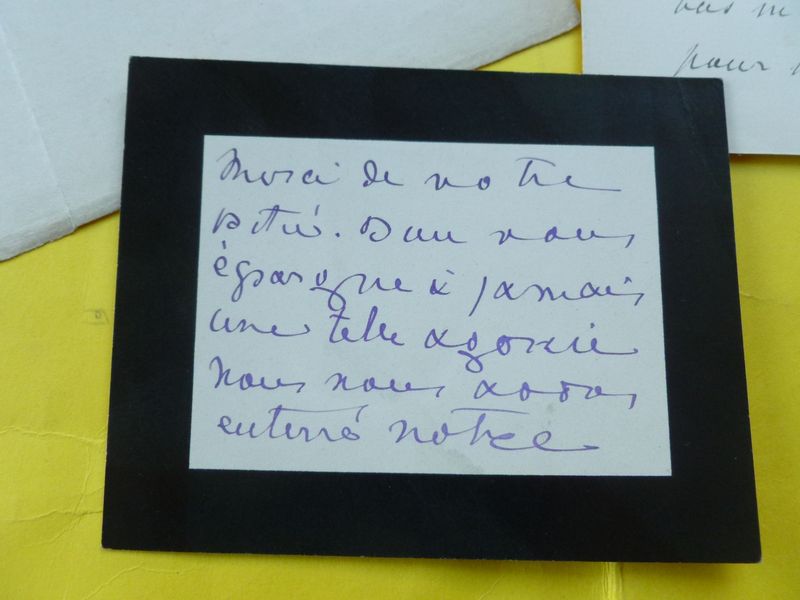 pour
Merci de votre
pitié. Dieu vous
épargne à jamais
une telle agonie
Nous nous avons
enterré notre